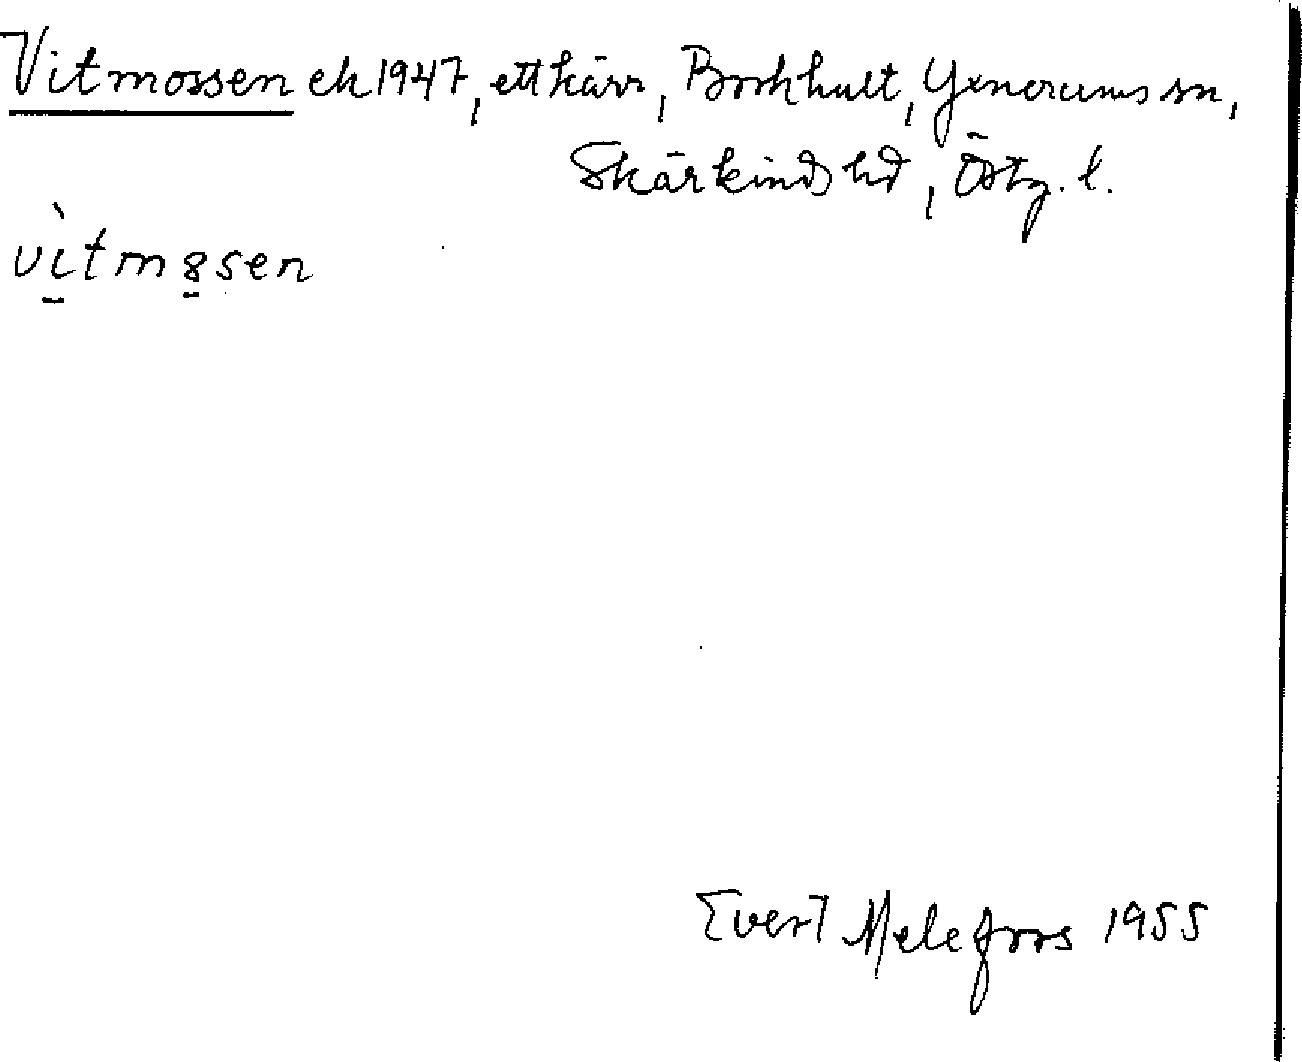 Vitmossen ek 1947, ett kärr, Borkhult, Yxnerums sn,
Skärkinds hd, Östg. l.
vìtm8sen
Evert Melefors 1955